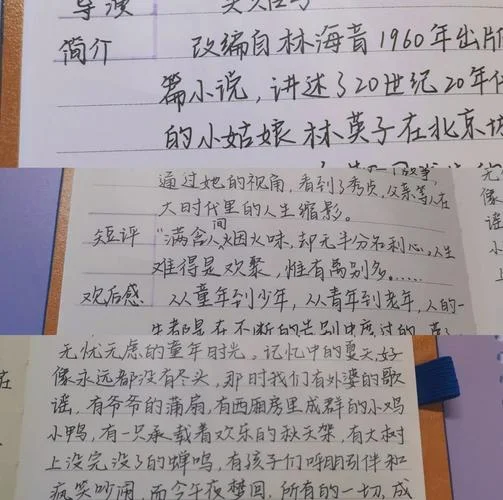 导演
简介 改编自林海音1960年出版
篇小说，讲述了20世纪20年代
的小姑娘林英子在北京城
通过她的视角，看到了秀贞，父亲等人在
大时代里的人生缩影。
短评 “满含人间烟火味，却无半分名利心，人生
难得是欢聚，惟有离别多……
观后感 从童年到少年，从青年到老年，人的一
生都是在不断的告别中度过的，
无忧无虑的童年时光。记忆中的夏天好
像永远都没有尽头，那时我们有外婆的歌
谣，有爷爷的蒲扇，有西厢房里成群的小鸡
小鸭，有一只承载着欢乐的秋天架，有大树
上没完没了的蝉鸣，有孩子们呼朋引伴和
疯笑吵闹，而今午夜梦回，所有的一切，成